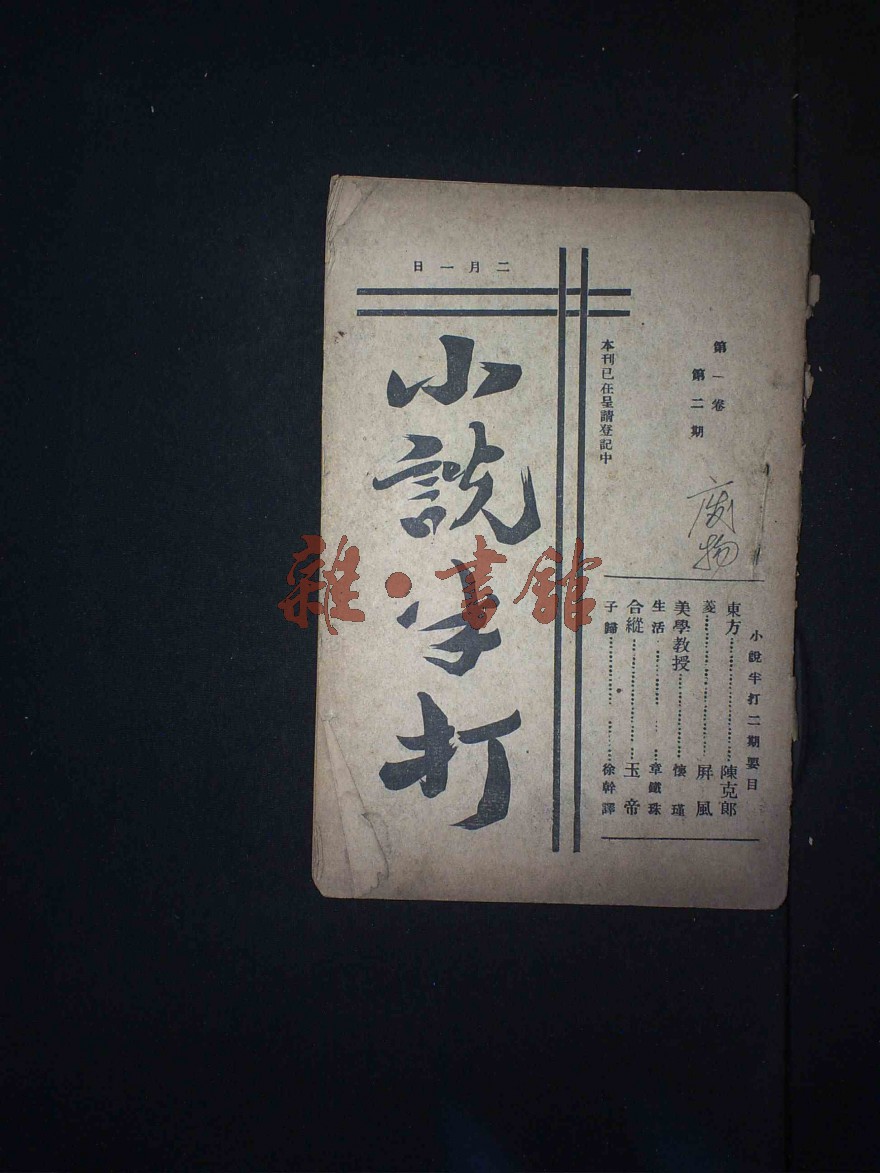 二月一日
第一卷
第二期
本刊已在呈請登記中
小說半打
廢物
小說半打二期要目
東方⋯⋯⋯⋯⋯⋯陳克郎
菱⋯⋯⋯⋯⋯⋯屏風
美學教授⋯⋯⋯⋯⋯⋯懷瑾
生活⋯⋯⋯⋯⋯⋯章鐵珠
合縱⋯⋯⋯⋯⋯⋯玉帝
子歸⋯⋯⋯⋯⋯⋯徐幹譯
雜·書館